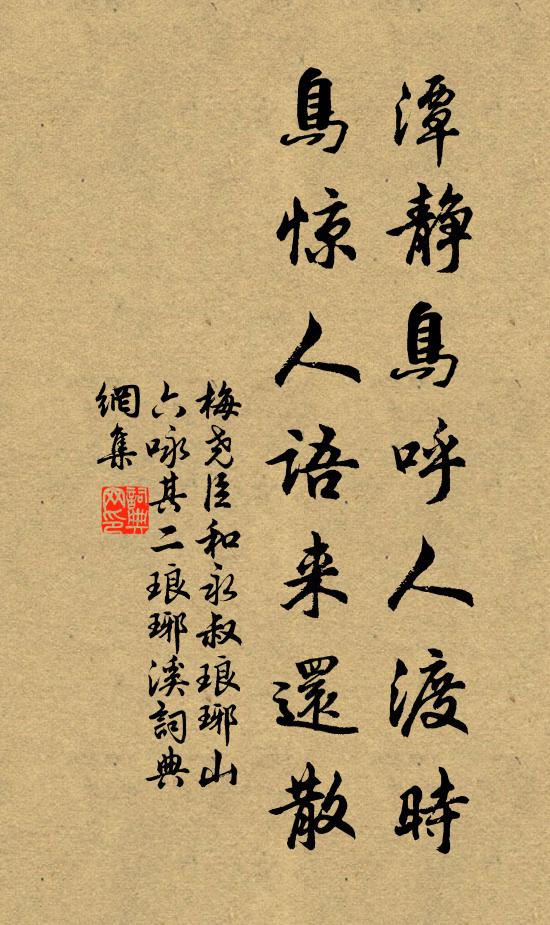 潭静鳥呼人渡時
鳥惊人語来還散
梅尧臣和永叔琅琊山
六咏其二琅琊溪詞典
網集
詞典
网印